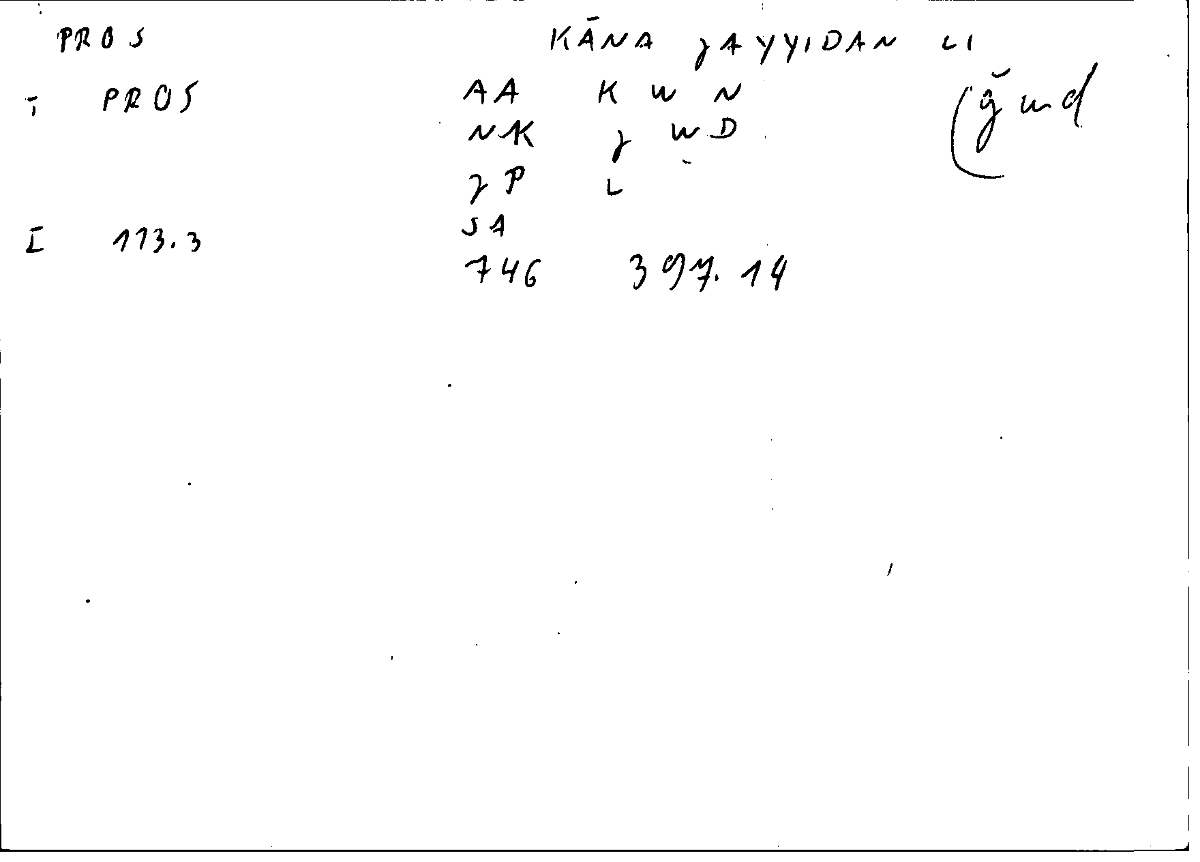 PROS KĀNA ɣAYYIDAN LI
i PROS AA K W N
NK ɣ W D
(ǧwd
ɣP L
SA
I 113.3
746 397.14